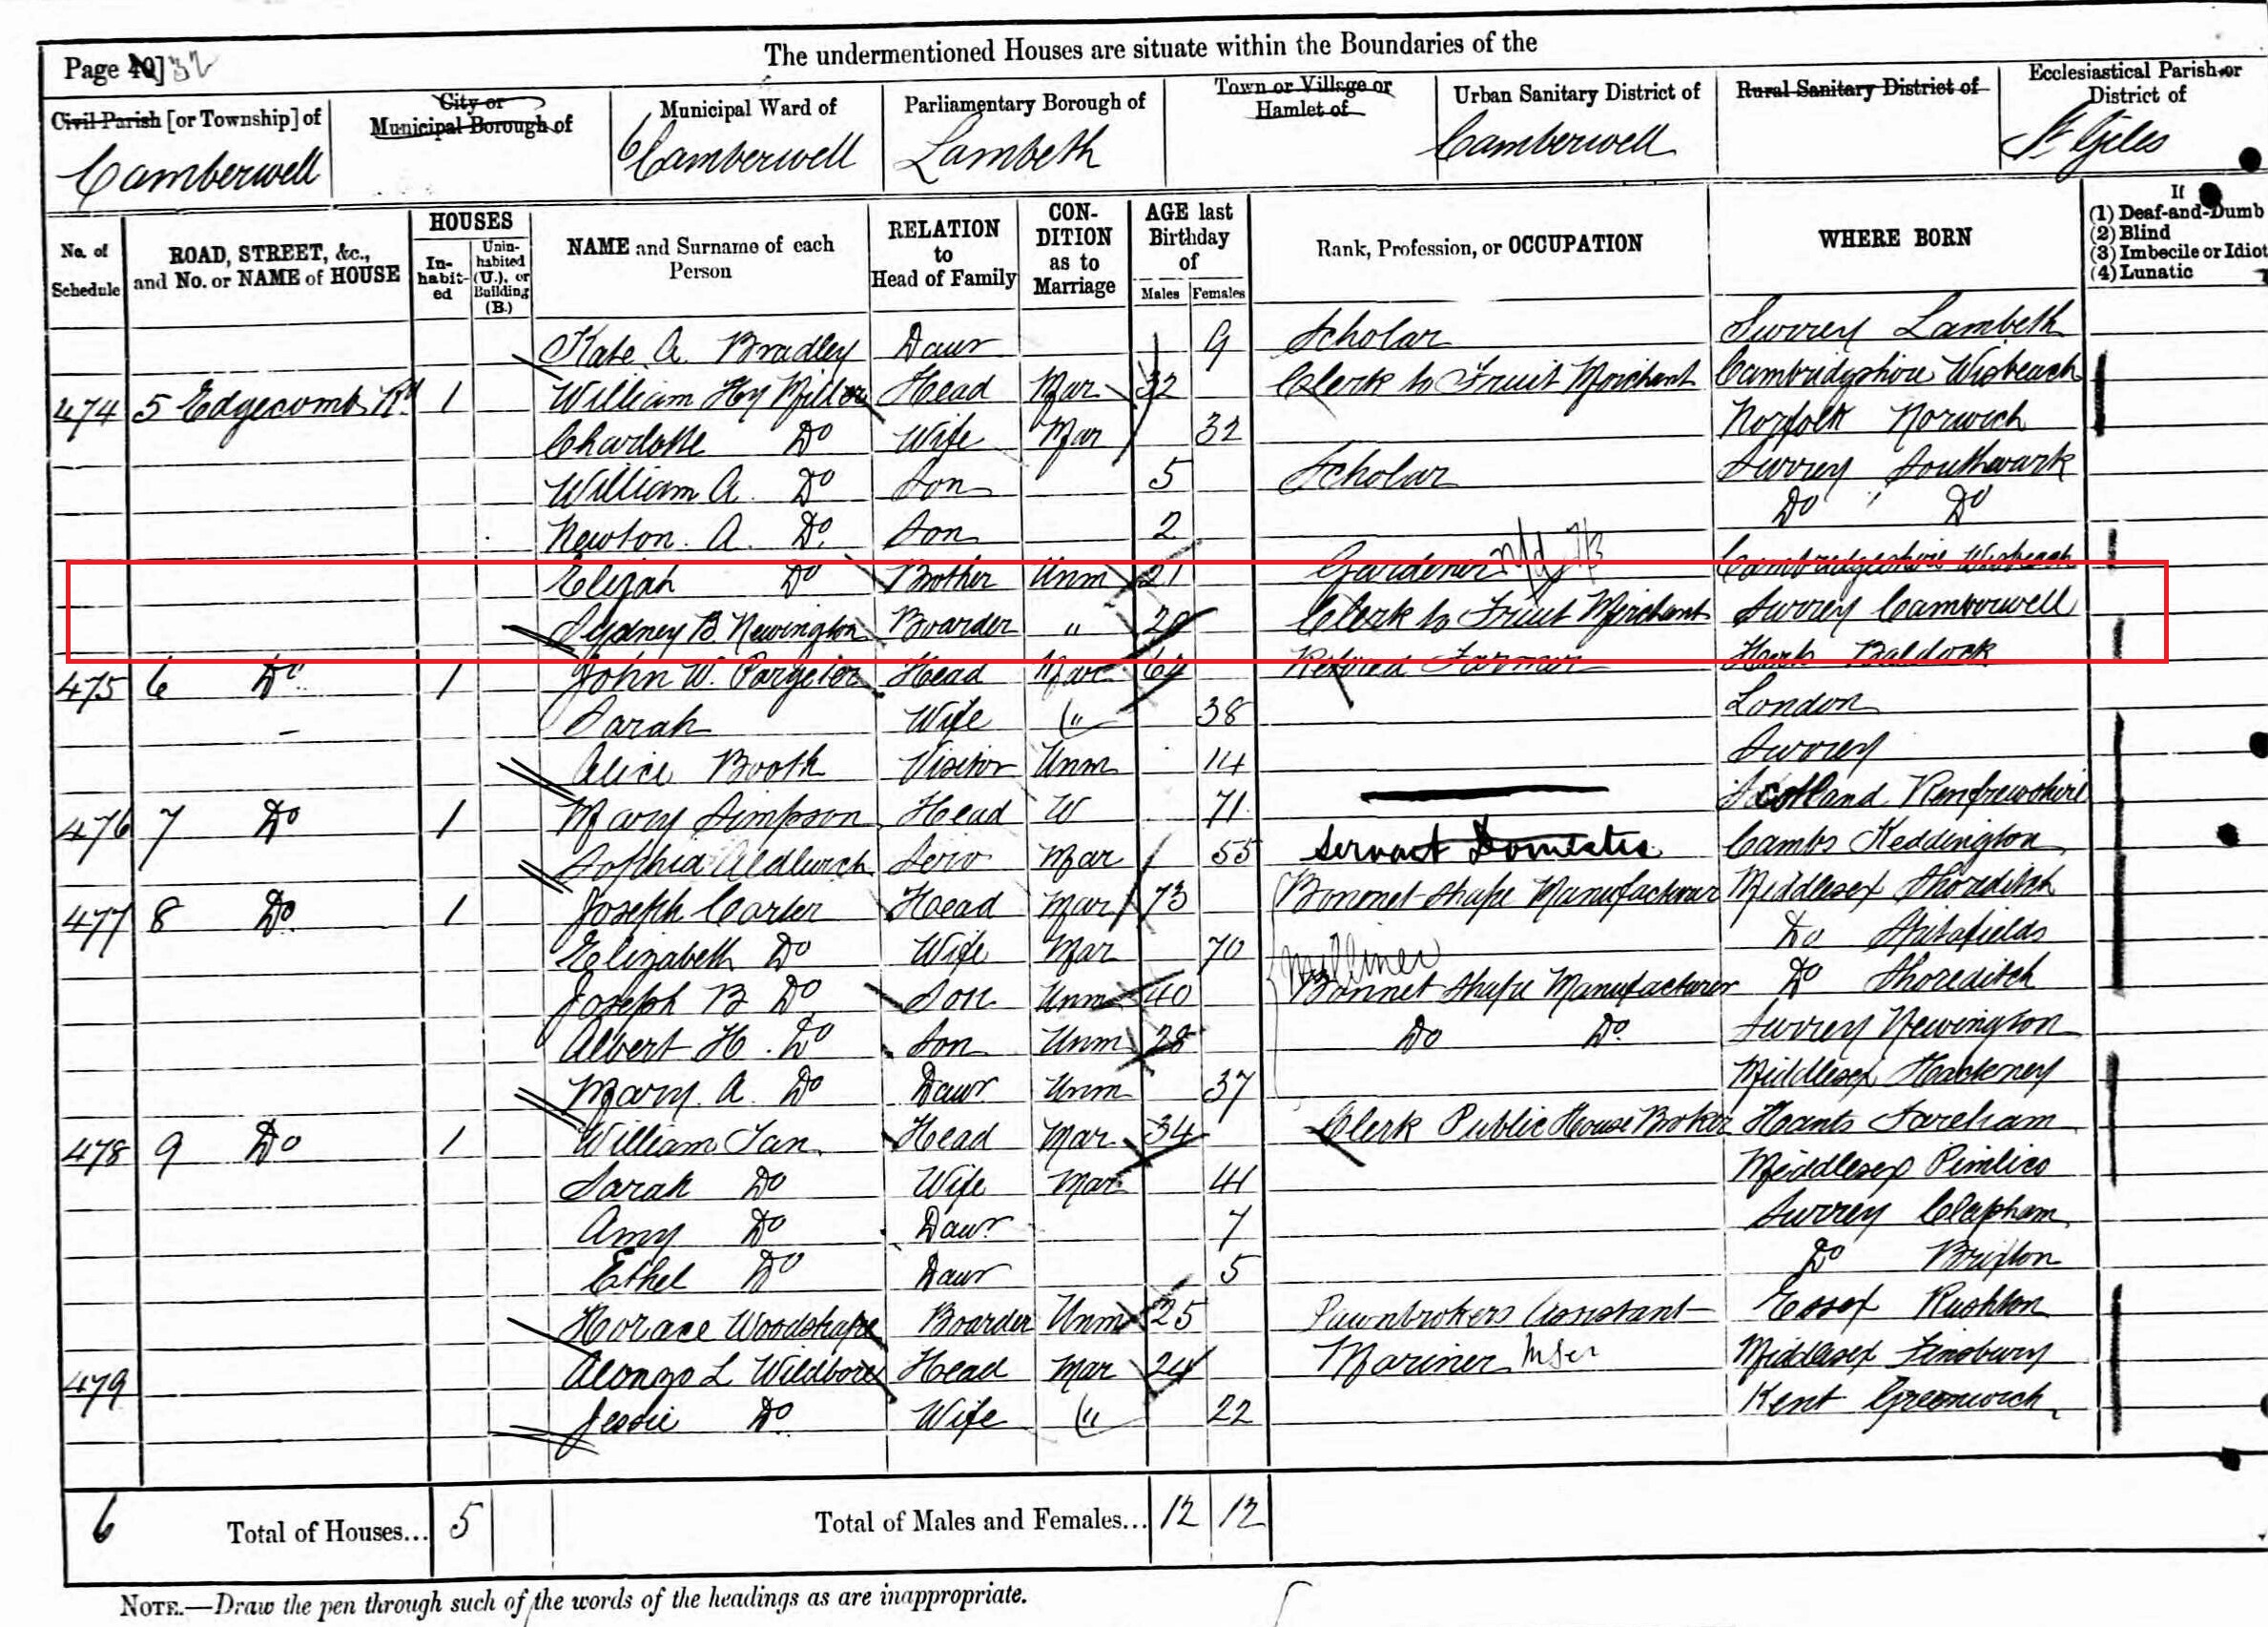 The undermentioned Houses are situate within the Boundaries of the
Page 40] 32
Civil Parish [or Township] of
Camberwell
City or Municipal Borough of
Municipal Ward of
Camberwell
Parliamentary Borough of
Lambeth
Town or Village or Hamlet of
Urban Sanitary District of
Camberwell
Rural Sanitary District of
Ecclesiastical Parish or District of
St Giles
No. of Schedule
ROAD, STREET, &c., and No. or NAME of HOUSE
HOUSES
In-habit-ed
Unin-habited (U.), or Building (B.)
NAME and Surname of each Person
RELATION to Head of Family
CON-DITION as to Marriage
AGE last Birthday of
Males Females
Rank, Profession, or OCCUPATION
WHERE BORN
If (1) Deaf-and-Dumb (2) Blind (3) Imbecile or Idiot (4) Lunatic
Kate A. Bradley Daur 9 Scholar Surrey Lambeth
474 5 Edgecomb Rd 1 William Hy Miller Head Mar 32 Clerk to Fruit Merchant Cambridgshire Wisbeach
Charlotte Do Wife Mar 32 Norfolk Norwich
William A. Do Son 5 Scholar Surrey Southwark
Newton. A. Do. Son 2 Do Do
Elijah Do Brother Unm 21 Gardener Cambridgeshire Wisbeach
Sydney B Newington Boarder " 20 Clerk to Fruit Merchant Surrey Camberwell
475 6 Do. 1 John W. Pargeter Head Mar 64 Retired Farmer Herts Baldock
Sarah Wife " 38 London
Alice Booth Visitor Unm 14 Surrey
476 7 Do 1 Mary Simpson Head W 71 Scotland Renfrewshire
Sophia Serv Mar 55 Servant Domestic Cambs Keddington
477 8 Do. 1 Joseph Carter Head Mar 73 Bonnet Shape Manufacturer Middlesex Shoreditch
Elizabeth Do Wife Mar 70 Do Spitafields
Milliner
Joseph B Do Son Unm 40 Bonnet Shape Manufacturer Do Shoreditch
Albert H. Do Son Unm 28 Do Do. Surrey Newington
Mary. A. Do Daur Unm 37 Middlesex Hackney
478 9 Do 1 William Ian. Head Mar 34 Clerk Public House Broker Hants Fareham
Sarah Do Wife Mar 41 Middlesex Pimlico
Amy Do Daur 7 Surrey Clapham
Ethel Do Daur 5 Do Brixton
Horace Woodshape Boarder Unm 25 Pawnbrokers Assistant Essex Rushton
479 Alonzo L Wildbore Head Mar 24 Mariner M Ser Middlesex Finsbury
Jessie Do. Wife " 22 Kent Greenwich
6 Total of Houses... 5 Total of Males and Females... 12 12
NOTE.—Draw the pen through such of the words of the headings as are inappropriate.